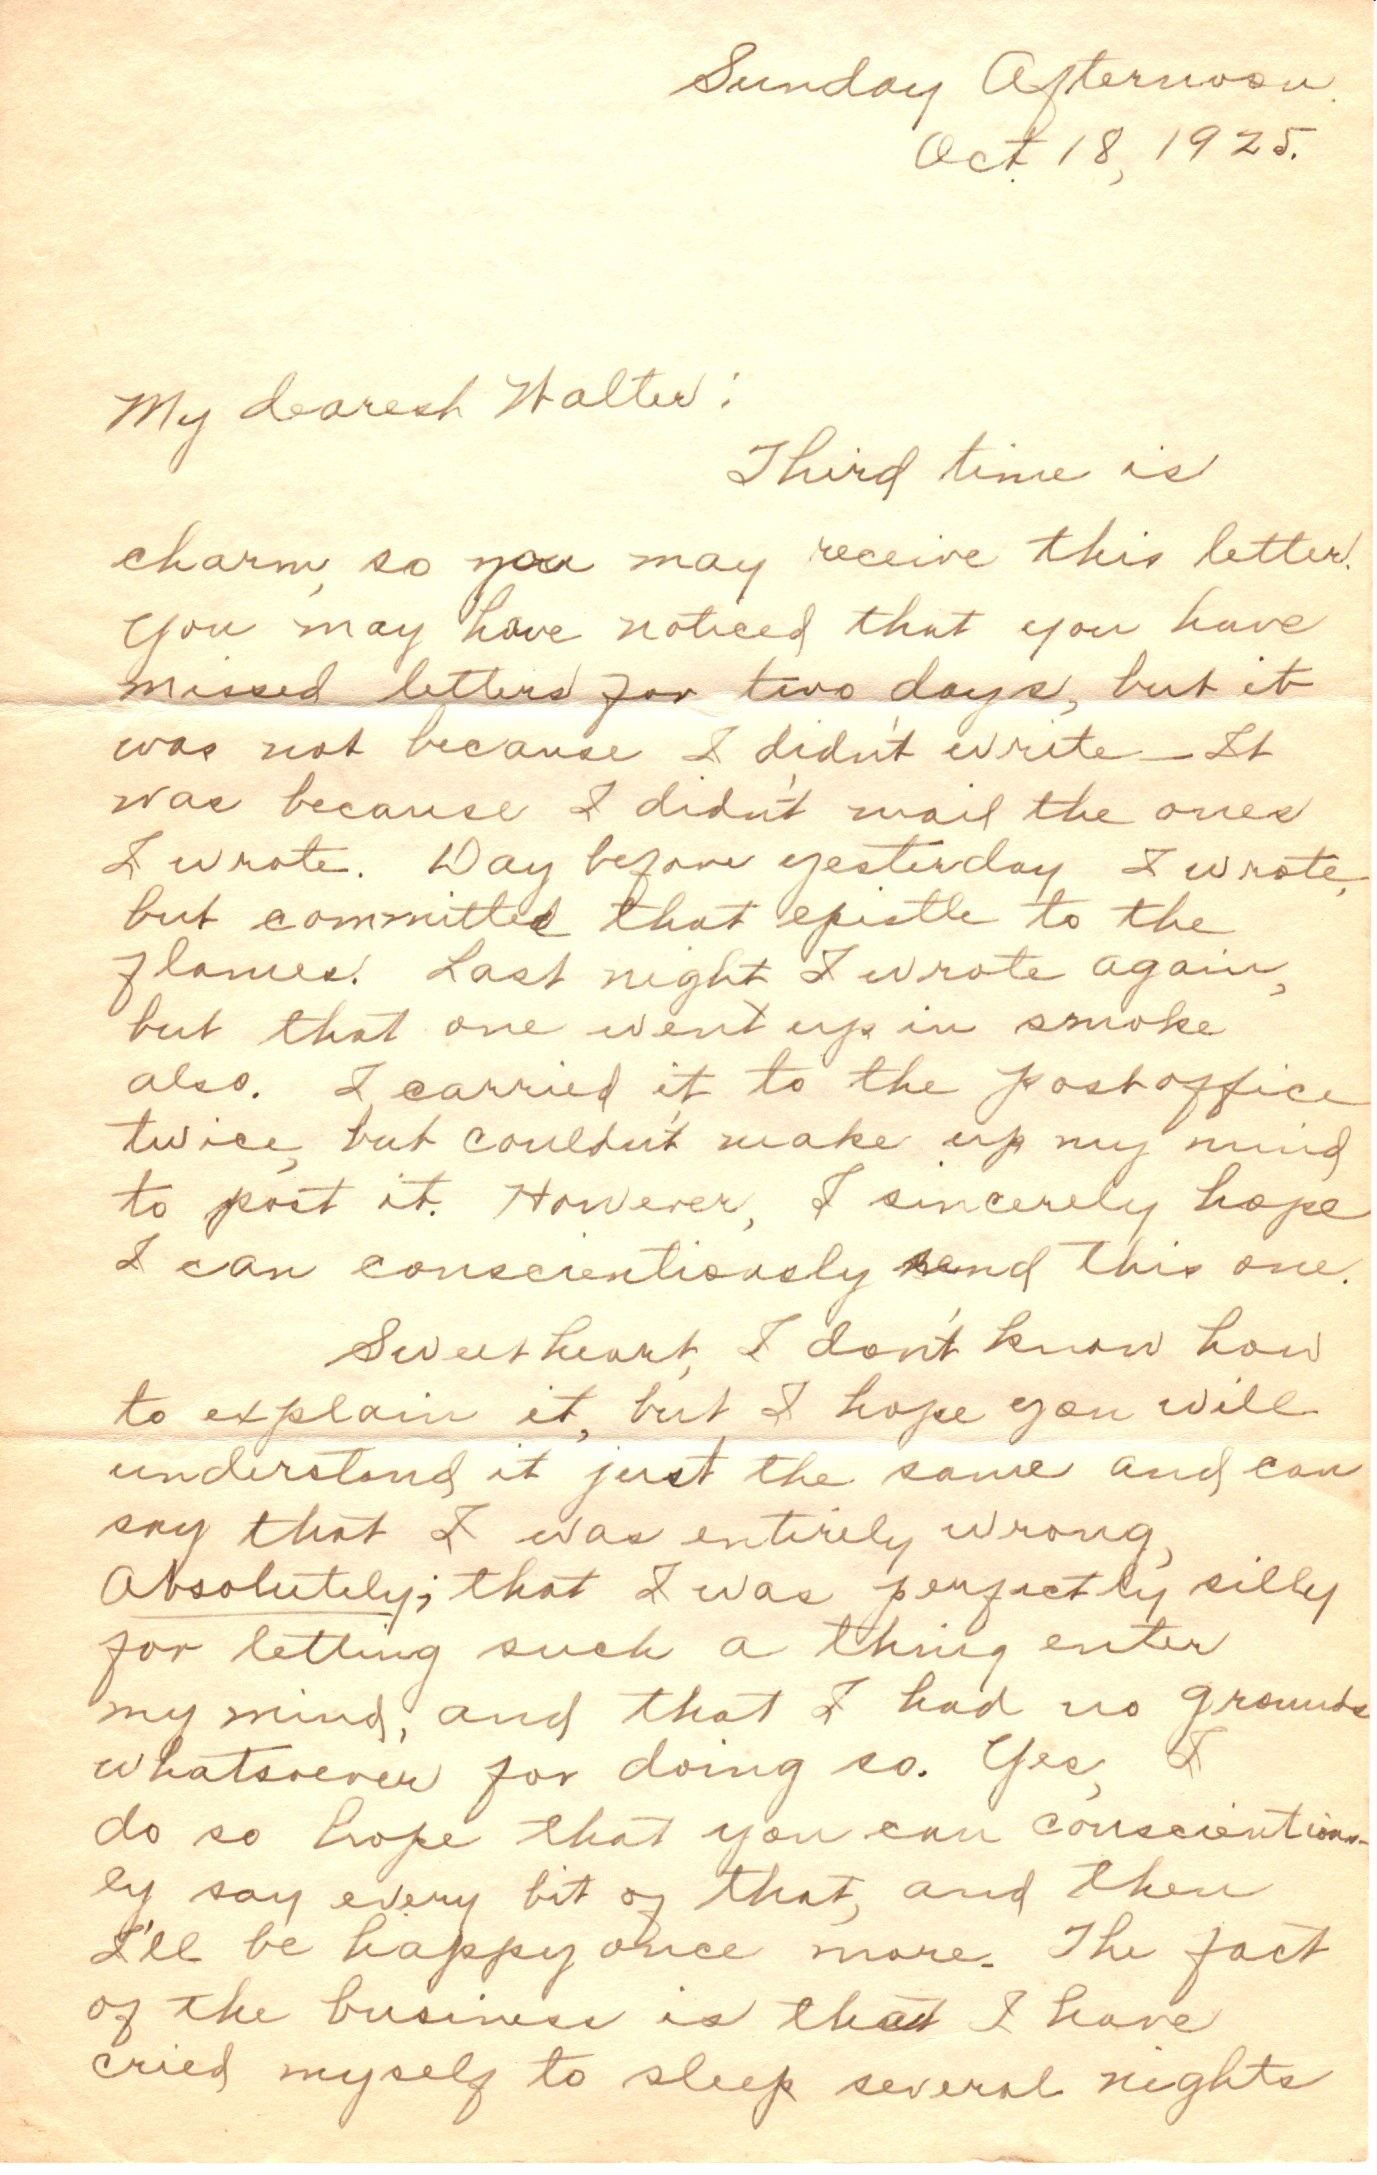 Sunday Afternoon.
Oct. 18, 1925.
My dearest Walter:
Third time is
charm, so you may receive this letter.
You may have noticed that you have
missed letters for two days, but it
was not because I didn't write — It
was because I didn't mail the ones
I wrote. Day before yesterday I wrote,
but committed that epistle to the
flames. Last night I wrote again,
but that one went up in smoke
also. I carried it to the postoffice
twice, but couldn't make up my mind
to post it. However, I sincerely hope
I can conscientiously send this one.
Sweetheart, I don't know how
to explain it, but I hope you will
understand it just the same and can
say that I was entirely wrong,
Absolutely; that I was perfectly silly
for letting such a thing enter
my mind, and that I had no grounds
whatsoever for doing so. Yes, I
do so hope that you can conscientious-
ly say every bit of that, and then
I'll be happy once more. The fact
of the business is that I have
cried myself to sleep several nights